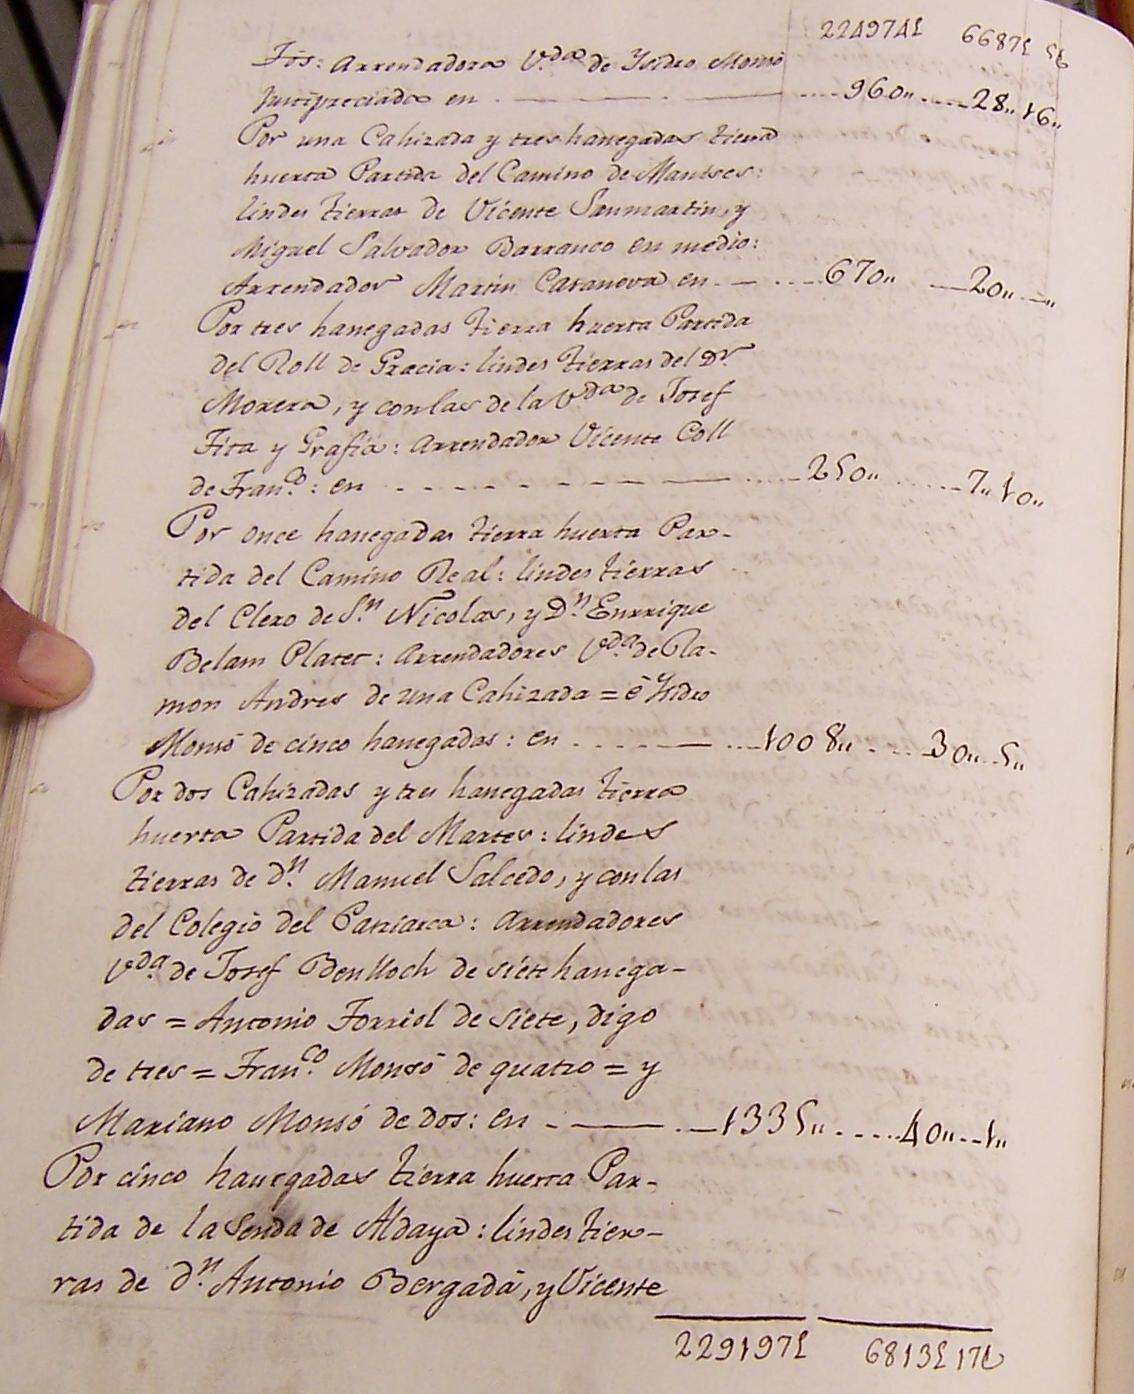 224974£ 6687£ 5§
Jos: Arrendadora V.da de Ysidro Monsó
Justipreciada en . — . — ....960,,.....28,,16,,
Por una Cahizada y tres hanegadas tierra
huerta Partida del Camino de Manises:
lindes tierras de Vicente Sanmartin, y
Miguel Salvador Barranco en medio:
Arrendador Martin Casanova en. — .....670,, —20,,—,,
Por tres hanegadas tierra huerta Partida
del Roll de Gracia: lindes tierras del Dr
Morera, y con las de la V.da de Josef
Fita y Grafiá: Arrendador Vicente Coll
de Fran.co: en - - - - - - - — ......250,, ......7,,10,,
Por once hanegadas tierra huerta Par-
tida del Camino Real: lindes tierras
del Clero de S.n Nicolas, y D.n Enrrique
Belam Plater: Arrendadores V.da de Ra-
mon Andres de una Cahizada = é Ysidro
Monsó de cinco hanegadas: en ..... — ....1008,,. ....30,,..5,,
Por dos Cahizadas y tres hanegadas tierra
huerta Partida del Martes: lindes
tierras de d.n Manuel Salcedo, y con las
del Colegio del Patriarca: Arrendadores
V.da de Josef Benlloch de siete hanega-
das = Antonio Forriol de siete, digo
de tres = Fran.co Monsó de quatro = y
Mariano Monsó de dos: en - — .—1335,,.....40,,--1,,
Por cinco hanegadas tierra huerta Par-
tida de la Senda de Aldaya: lindes tier-
ras de d.n Antonio Bergadá, y Vicente
229197£ 6813£17§